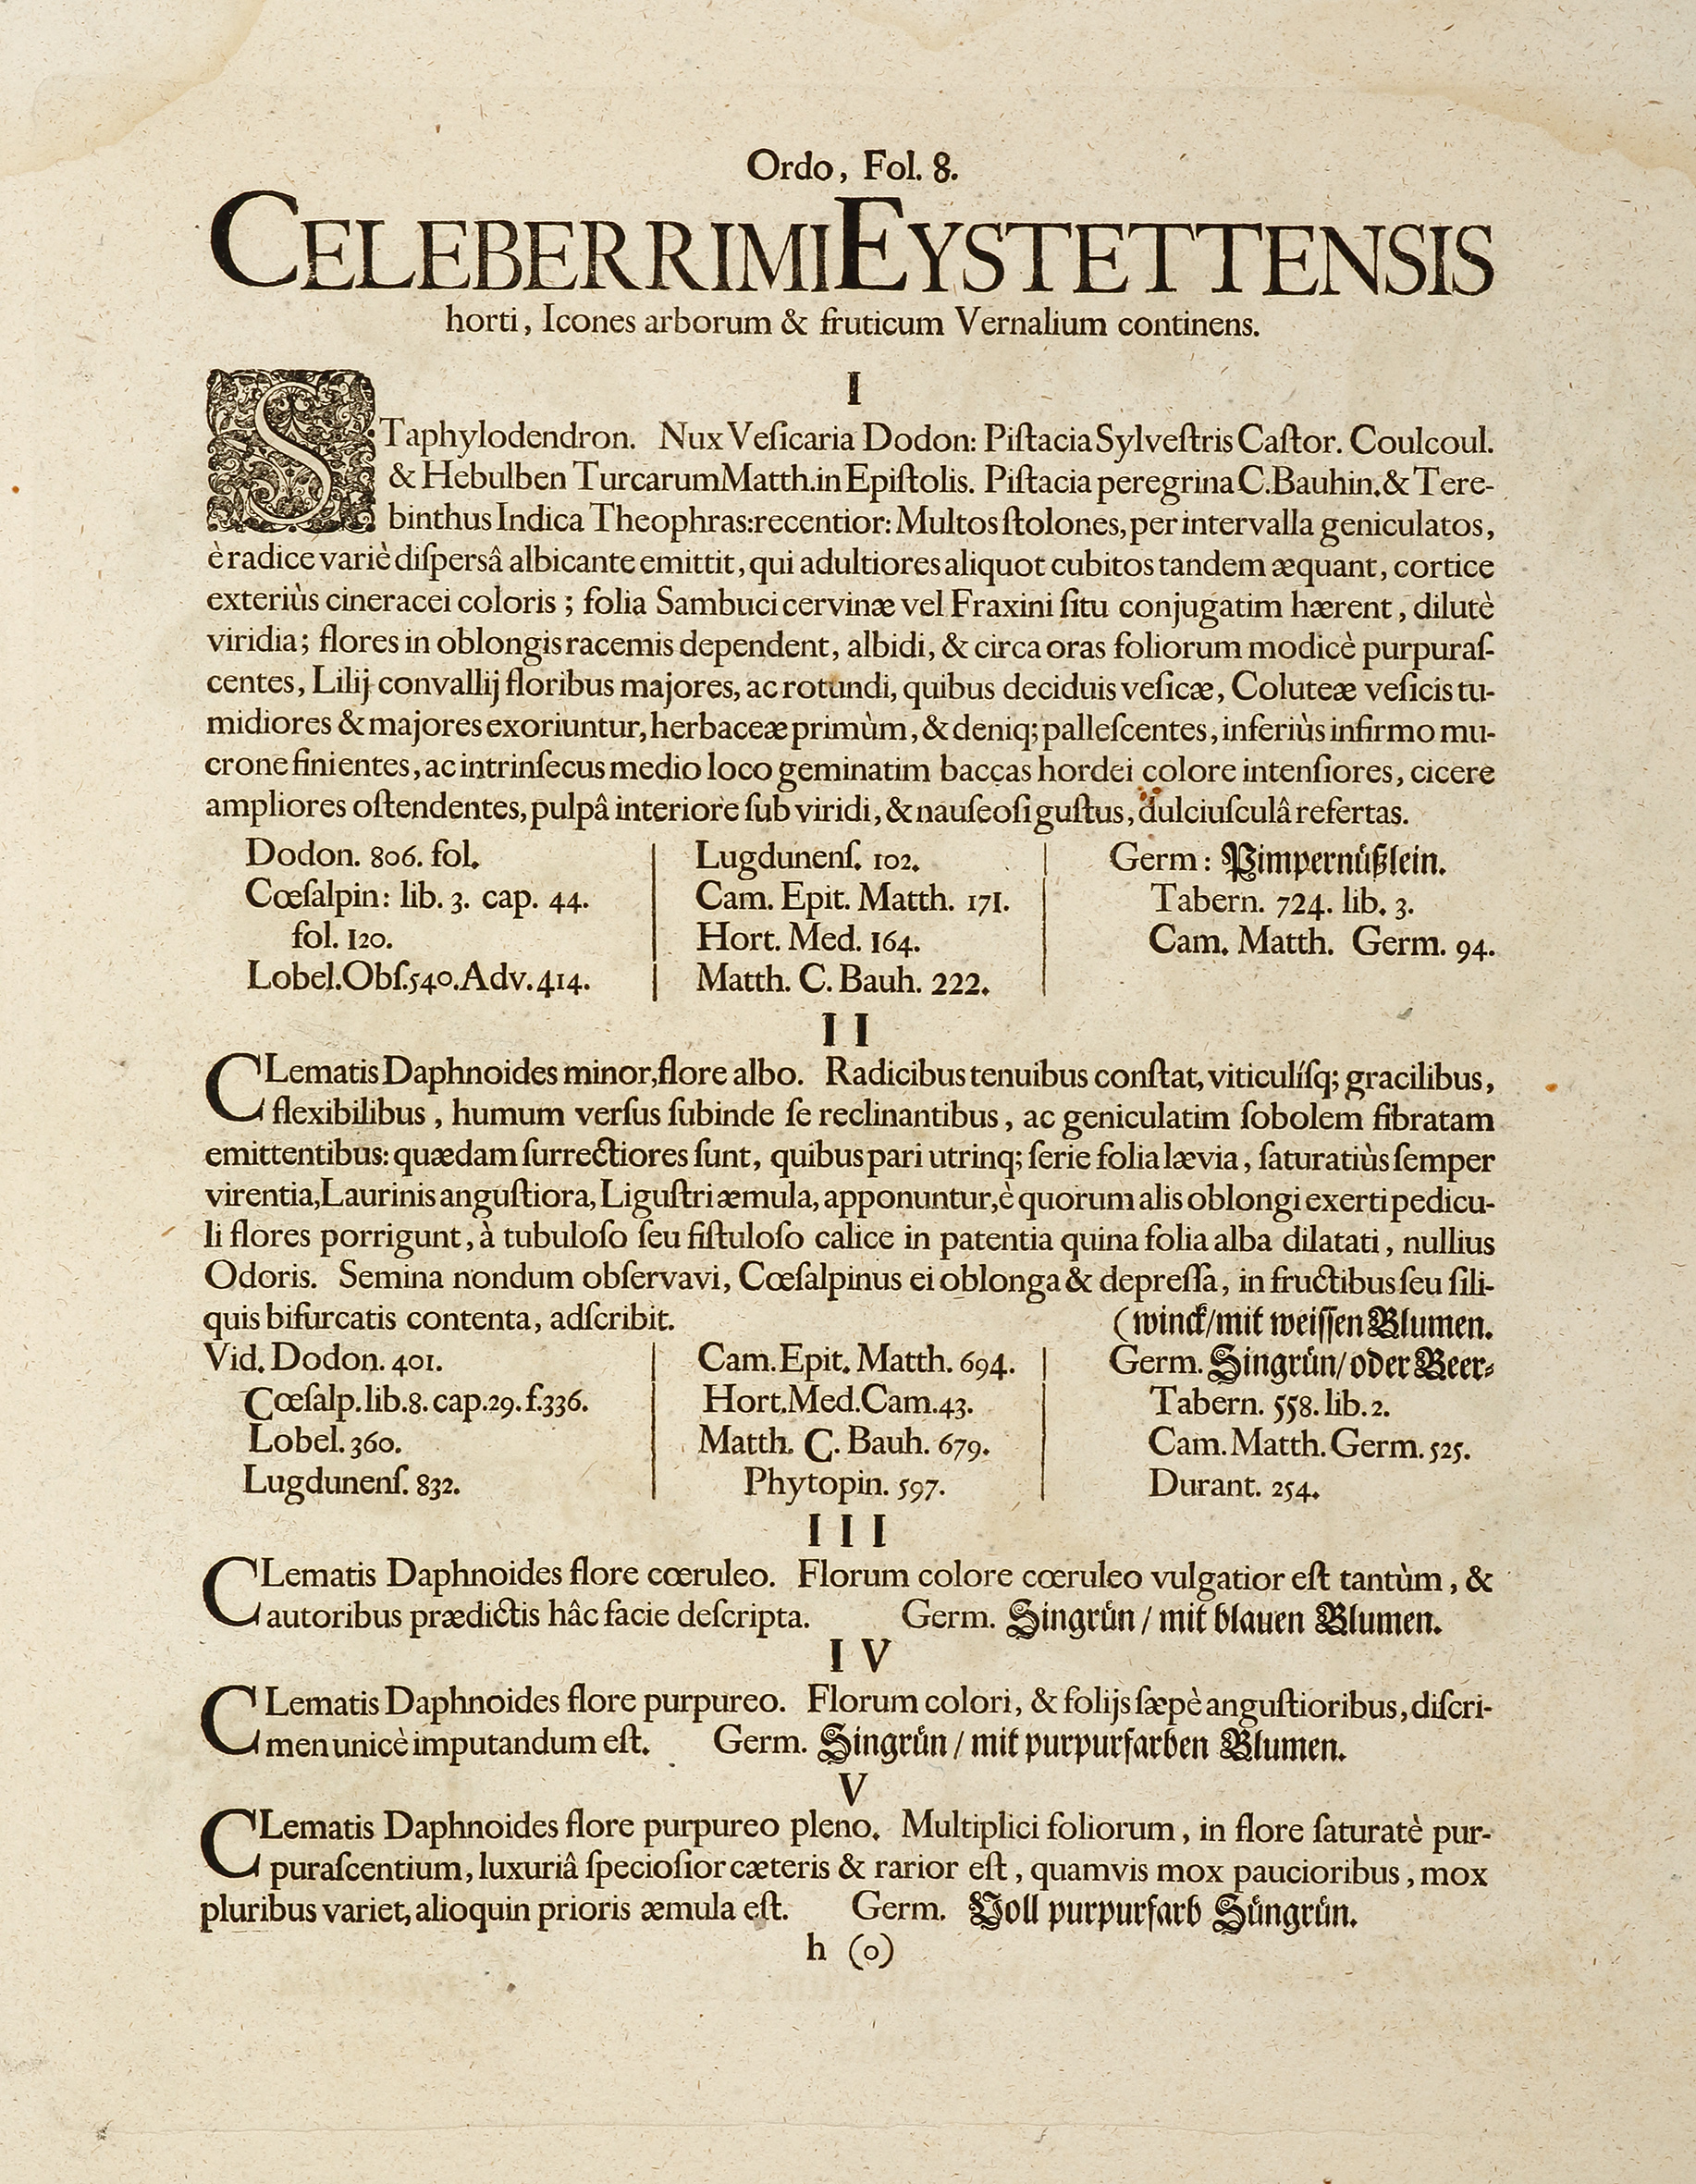 Ordo, Fol. 8.
CELEBERRIMI EYSTETTENSIS
horti, Icones arborum & fruticum Vernalium continens.
I
STaphylodendron. Nux Veſicaria Dodon: Piſtacia Sylveſtris Caſtor. Coulcoul.
& Hebulben Turcarum Matth. in Epiſtolis. Piſtacia peregrina C. Bauhin. & Tere-
binthus Indica Theophras: recentior: Multos ſtolones, per intervalla geniculatos,
è radice variè diſpersâ albicante emittit, qui adultiores aliquot cubitos tandem æquant, cortice
exteriùs cineracei coloris; folia Sambuci cervinæ vel Fraxini ſitu conjugatim hærent, dilutè
viridia; flores in oblongis racemis dependent, albidi, & circa oras foliorum modicè purpuraſ-
centes, Lilij convallij floribus majores, ac rotundi, quibus deciduis veſicæ, Coluteæ veſicis tu-
midiores & majores exoriuntur, herbaceæ primùm, & deniq; palleſcentes, inferiùs infirmo mu-
crone finientes, ac intrinſecus medio loco geminatim baccas hordei colore intenſiores, cicere
ampliores oſtendentes, pulpâ interiore ſub viridi, & nauſeoſi guſtus, dulciuſculâ refertas.
Dodon. 806. fol. | Lugdunenſ. 102. | Germ: Pimpernüßlein.
Cœſalpin: lib. 3. cap. 44. | Cam. Epit. Matth. 171. | Tabern. 724. lib. 3.
fol. 120. | Hort. Med. 164. | Cam. Matth. Germ. 94.
Lobel. Obſ. 540. Adv. 414. | Matth. C. Bauh. 222.
II
CLematis Daphnoides minor, flore albo. Radicibus tenuibus conſtat, viticulíſq; gracilibus,
flexibilibus, humum verſus ſubinde ſe reclinantibus, ac geniculatim ſobolem fibratam
emittentibus: quædam ſurrectiores ſunt, quibus pari utrinq; ſerie folia lævia, ſaturatiùs ſemper
virentia, Laurinis anguſtiora, Liguſtri æmula, apponuntur, è quorum alis oblongi exerti pedicu-
li flores porrigunt, à tubuloſo ſeu fiſtuloſo calice in patentia quina folia alba dilatati, nullius
Odoris. Semina nondum obſervavi, Cœſalpinus ei oblonga & depreſſa, in fructibus ſeu ſili-
quis bifurcatis contenta, adſcribit. (winck/mit weiſſen Blumen.
Vid. Dodon. 401. | Cam. Epit. Matth. 694. | Germ. Singrün/oder Beer-
Cœſalp. lib. 8. cap. 29. f. 336. | Hort. Med. Cam. 43. | Tabern. 558. lib. 2.
Lobel. 360. | Matth. C. Bauh. 679. | Cam. Matth. Germ. 525.
Lugdunenſ. 832. | Phytopin. 597. | Durant. 254.
III
CLematis Daphnoides flore cœruleo. Florum colore cœruleo vulgatior eſt tantùm, &
autoribus prædictis hâc facie deſcripta. Germ. Singrün / mit blauen Blumen.
IV
CLematis Daphnoides flore purpureo. Florum colori, & folijs ſæpè anguſtioribus, diſcri-
men unicè imputandum eſt. Germ. Singrün / mit purpurfarben Blumen.
V
CLematis Daphnoides flore purpureo pleno. Multiplici foliorum, in flore ſaturatè pur-
puraſcentium, luxuriâ ſpecioſior cæteris & rarior eſt, quamvis mox paucioribus, mox
pluribus variet, alioquin prioris æmula eſt. Germ. Voll purpurfarb Süngrün.
h (o)